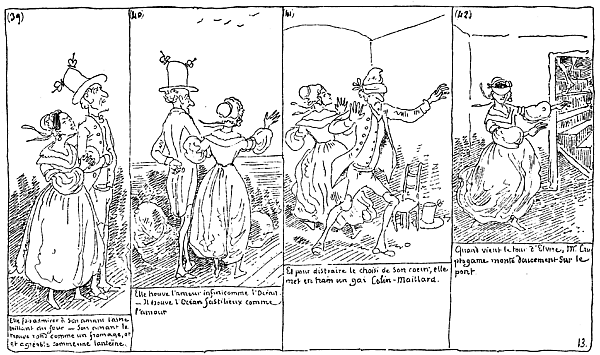 (39)
(40)
(41)
(42)
Elle fait admirer à son amant l'astre
brillant au four — Son amant le
trouve rond comme un fromage, et
et agréable comme une lanterne.
Elle trouve l'amour infini comme l'Océan.
— Il trouve l'Océan fastidieux comme
l'amour
Et pour distraire le choisi de son cœur, elle
met en train un gai Colin-Maillard.
Quand vient le tour d'Elvire, Mr
monte doucement sur le
pont
13.